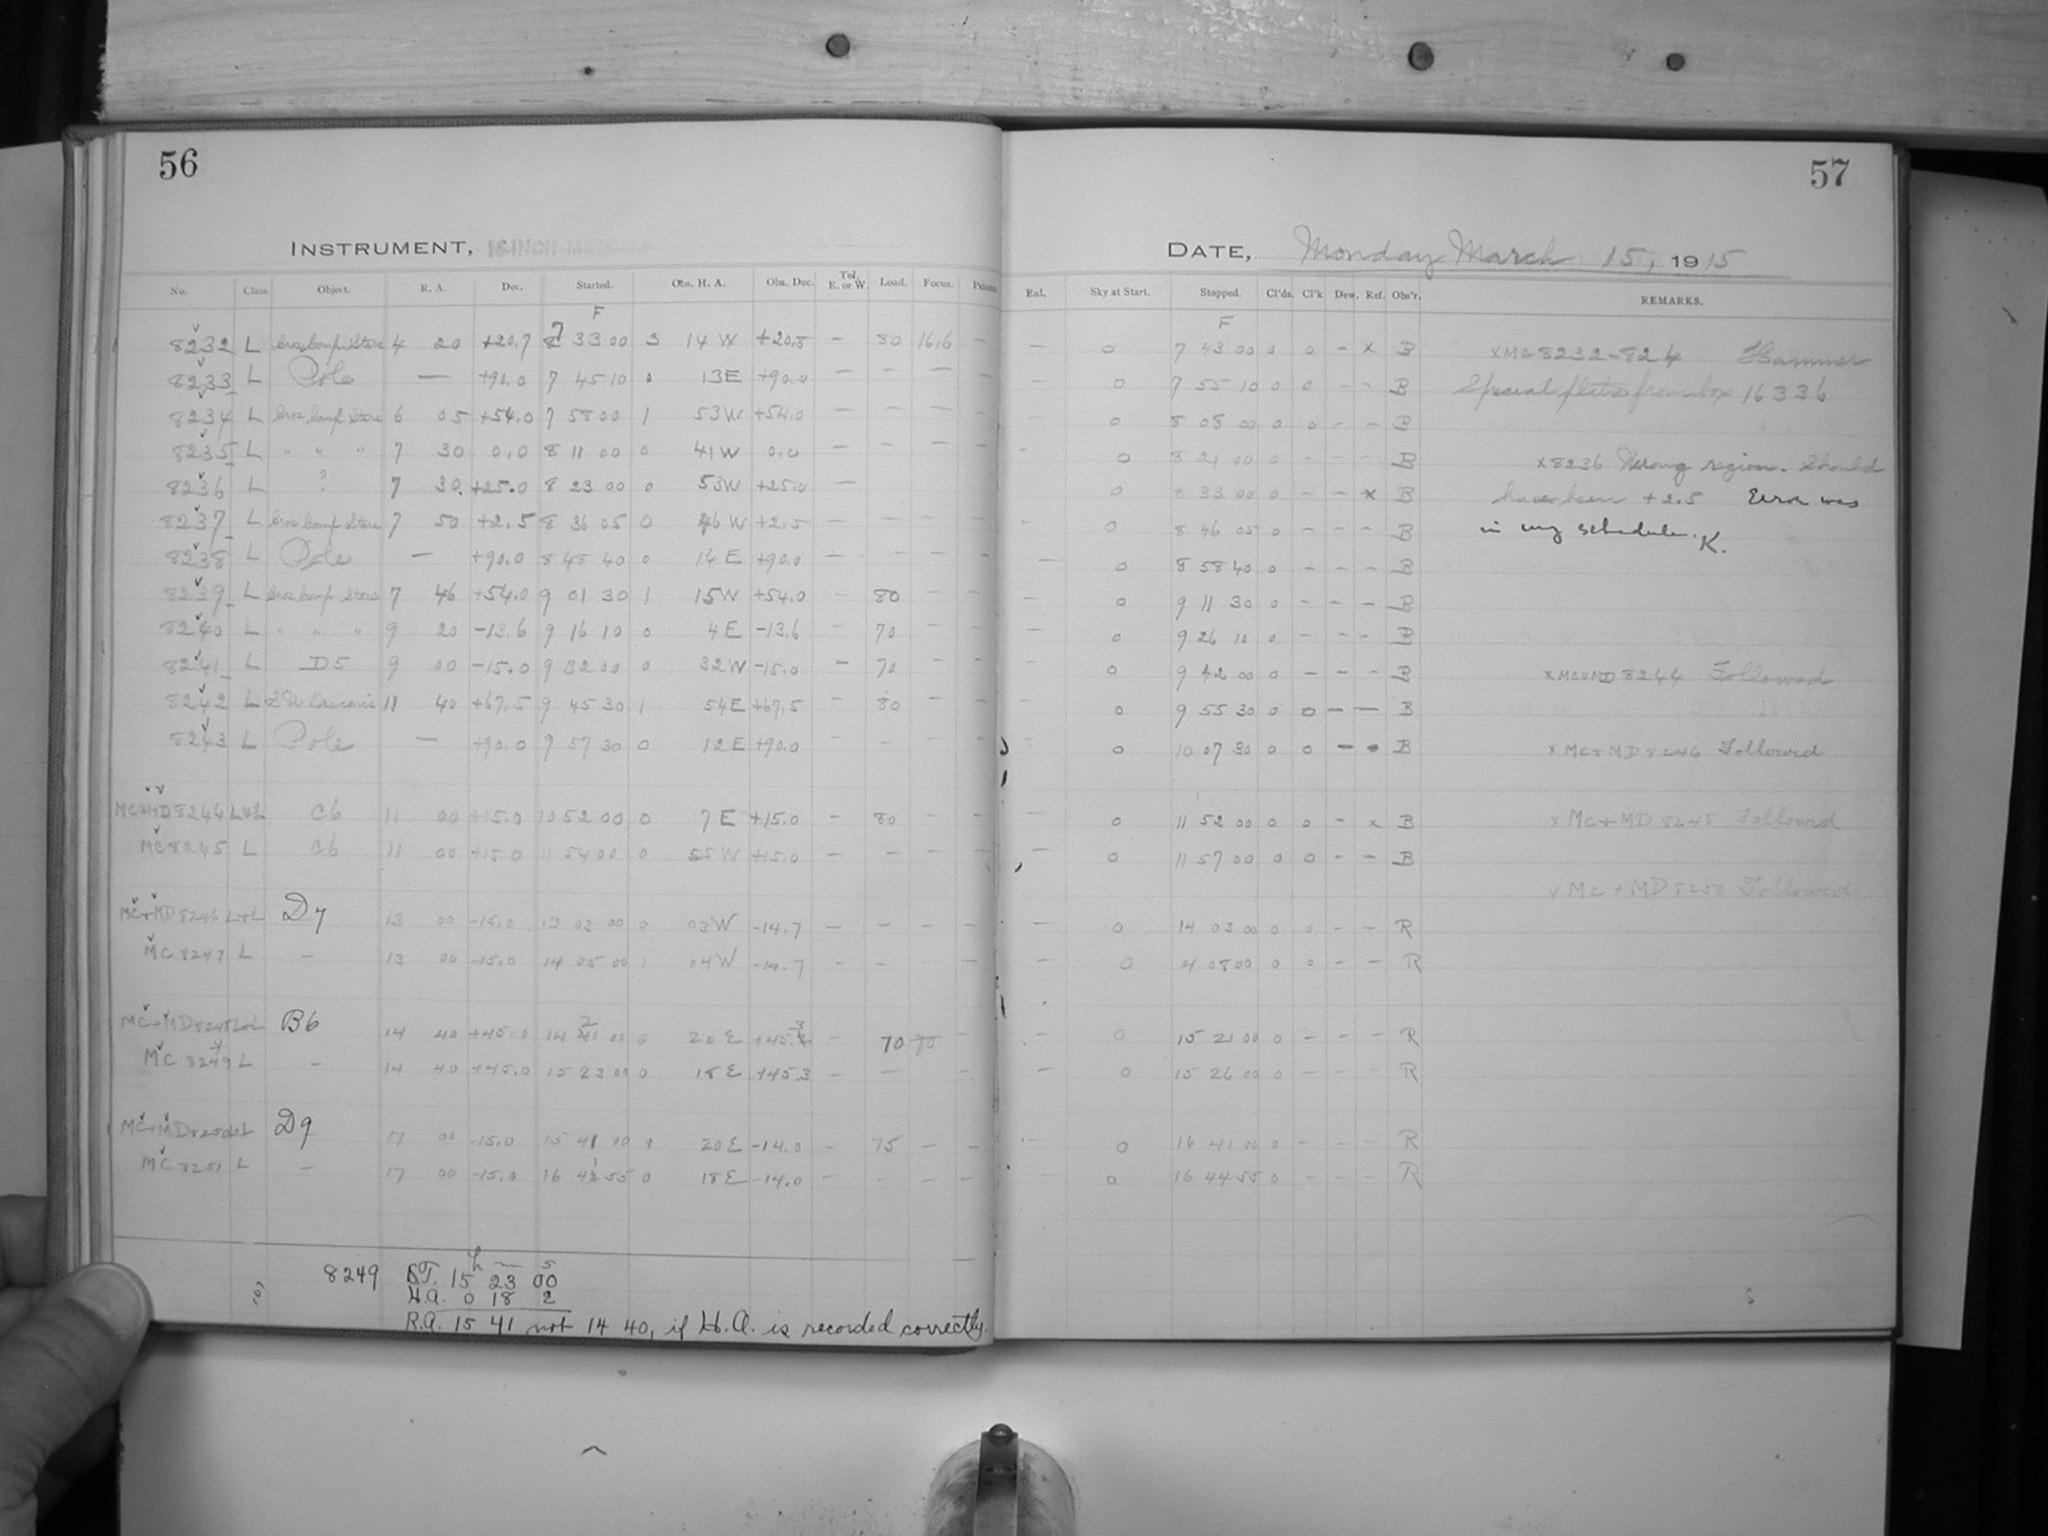 56
INSTRUMENT, 16 INCH METCALF
No. Class. Object. R. A. Dec. Started. Obs. H. A. Obs. Dec. Tel. E. or W. Load. Focus.
F
8232 L 4 20 +20.7 7 33 00 3 14 W +20.8 - 80 16.6 -
8233 L Pole — +90.0 7 45 10 0 13 E +90.0 - - - -
8234 L 6 05 +54.0 7 58 00 1 53 W +54.0 - - - -
8235 L " " " 7 30 0.0 8 11 00 0 41 W 0.0 - - - -
8236 L ? 7 30 +25.0 8 23 00 0 53 W +25.0 -
8237 L 7 50 +2.5 8 36 05 0 46 W +2.5 - - - -
8238 L Pole — +90.0 8 48 40 0 14 E +90.0 - - - -
8239 L 7 46 +54.0 9 01 30 1 15 W +54.0 - 80 - -
8240 L " " " 9 20 -13.6 9 16 10 0 4 E -13.6 - 70 - -
8241 L D5 9 00 -15.0 9 32 00 0 32 W -15.0 - 70 - -
8242 L 11 40 +67.5 9 45 30 1 54 E +67.5 - 80 - -
8243 L Pole — +90.0 9 57 30 0 12 E +90.0 - - - -
MC&MD 8244 L&L C6 11 00 +15.0 10 52 00 0 7 E +15.0 - 80 - -
MC 8245 L C6 11 00 +15.0 11 54 00 0 55 W +15.0 - - - -
MC+MD 8246 L+L D7 13 00 -15.0 13 03 00 0 03 W -14.7 - - - -
MC 8247 L - 13 00 -15.0 14 05 00 1 04 W -14.7 - - - -
MC+MD 8248 L+L B6 14 40 +45.0 14 41 00 0 20 E +45.3 - 70 70 -
MC 8249 L - 14 40 +45.0 15 23 00 0 18 E +45.3 - - -
MC+MD 8250 L+L D9 17 00 -15.0 15 41 00 20 E -14.0 - 75 - -
MC 8251 L - 17 00 -15.0 16 41 55 0 18 E -14.0 - - - -
h m s
8249 S.T. 15 23 00
H.A. 0 18 2
R.A. 15 41 not 14 40, if H.A. is recorded correctly.
57
DATE, Monday March 15, 1915
Sky at Start. Stopped. Cl'ds. Cl'k Dew. Ref. Obs'r. REMARKS.
F
- 0 7 43 00 0 0 - x B x MC 8232-824 Hammer
- 0 7 55 10 0 0 - - B Special plates from box 16336
0 8 08 00 0 0 - - B
- 0 8 21 00 0 - - - B x 8236 Wrong region. Should
0 8 33 00 0 - - x B have been +2.5 Error was
- 0 8 46 05 0 - - - B in my schedule. K.
- 0 8 58 40 0 - - - B
- 0 9 11 30 0 - - - B
- 0 9 26 10 0 - - - B
- 0 9 42 00 0 - - - B x MC&MD 8244 Followed
- 0 9 55 30 0 0 - - B
0 10 07 30 0 0 - - B x MC+MD 8246 Followed
- 0 11 52 00 0 0 - x B x MC+MD 8248 Followed
- 0 11 57 00 0 0 - - B
x MC+MD 8250 Followed
- 0 14 03 00 0 0 - - R
- 0 14 08 00 0 0 - - R
- 0 15 21 00 0 - - - R
- 0 15 26 00 0 - - - R
- 0 16 41 00 0 - - - R
- 0 16 44 55 0 - - - R